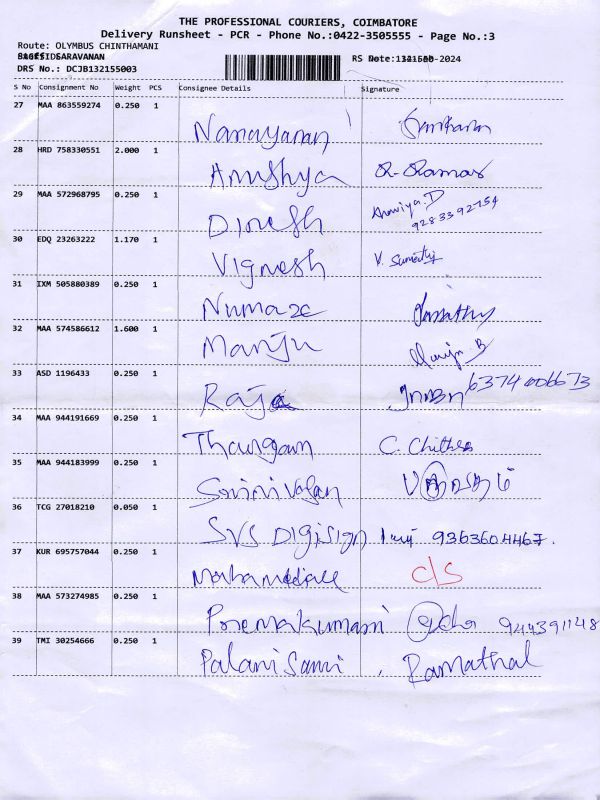 THE PROFESSIONAL COURIERS, COIMBATORE
Delivery Runsheet - PCR - Phone No.:0422-3505555 - Page No.:3
Route: OLYMBUS CHINTHAMANI
SARAVANAN
RS -2024
DRS No.: DCJB132155003
S No Consignment No Weight PCS Consignee Details Signature
27 MAA 863559274 0.250 1 Narayanan
28 HRD 758330551 2.000 1 Anushya
29 MAA 572968795 0.250 1 Dinesh 9283392754
30 EDQ 23263222 1.170 1 Vignesh V. Sumathy
31 IXM 505880389 0.250 1
32 MAA 574586612 1.600 1 Manju Manju B
33 ASD 1196433 0.250 1 Raja 6374006673
34 MAA 944191669 0.250 1 Thangam C. Chithra
35 MAA 944183999 0.250 1 Srinivasan
36 TCG 27018210 0.050 1 SVS Digisign 9363604467.
37 KUR 695757044 0.250 1 c/s
38 MAA 573274985 0.250 1 Premakumari 944391148
39 TMI 30254666 0.250 1 Palanisami . Ramathal